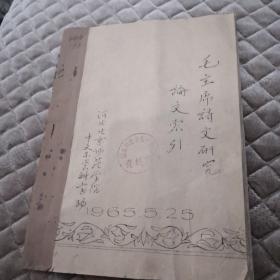 毛主席诗文研究
论文索引
河北北京师范学院
中文系资料室编
1965.5.25